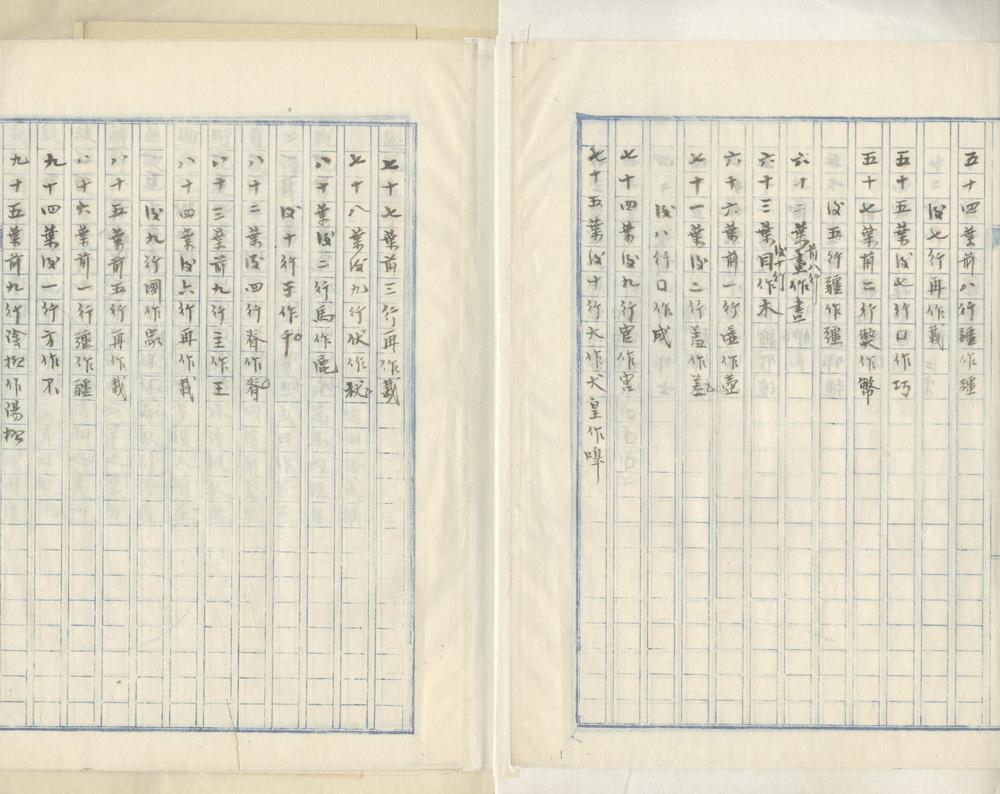 五十四葉前八行疆作彊
後七行再作載
五十五葉後七行口作巧
五十七葉前二行獘作幣
後五行疆作彊
六十二葉前八行畫作晝
六十三葉後十行目作木
六十六葉前一行壺作壷
七十一葉後二行羞作差
後八行口作成
七十四葉後九行官作宮
七十五葉後十行大作犬皇作嘷
七十七葉前三行再作載
七十八葉後九行伏作
八十葉後二行馬作
後十行于作千
八十二葉後四行脊作脊
八十三葉前九行主作王
八十四葉後六行再作載
後九行國作
八十五葉前五行再作載
八十六葉前一行疆作疆
九十四葉後一行方作不
九十五葉前九行陰作陽